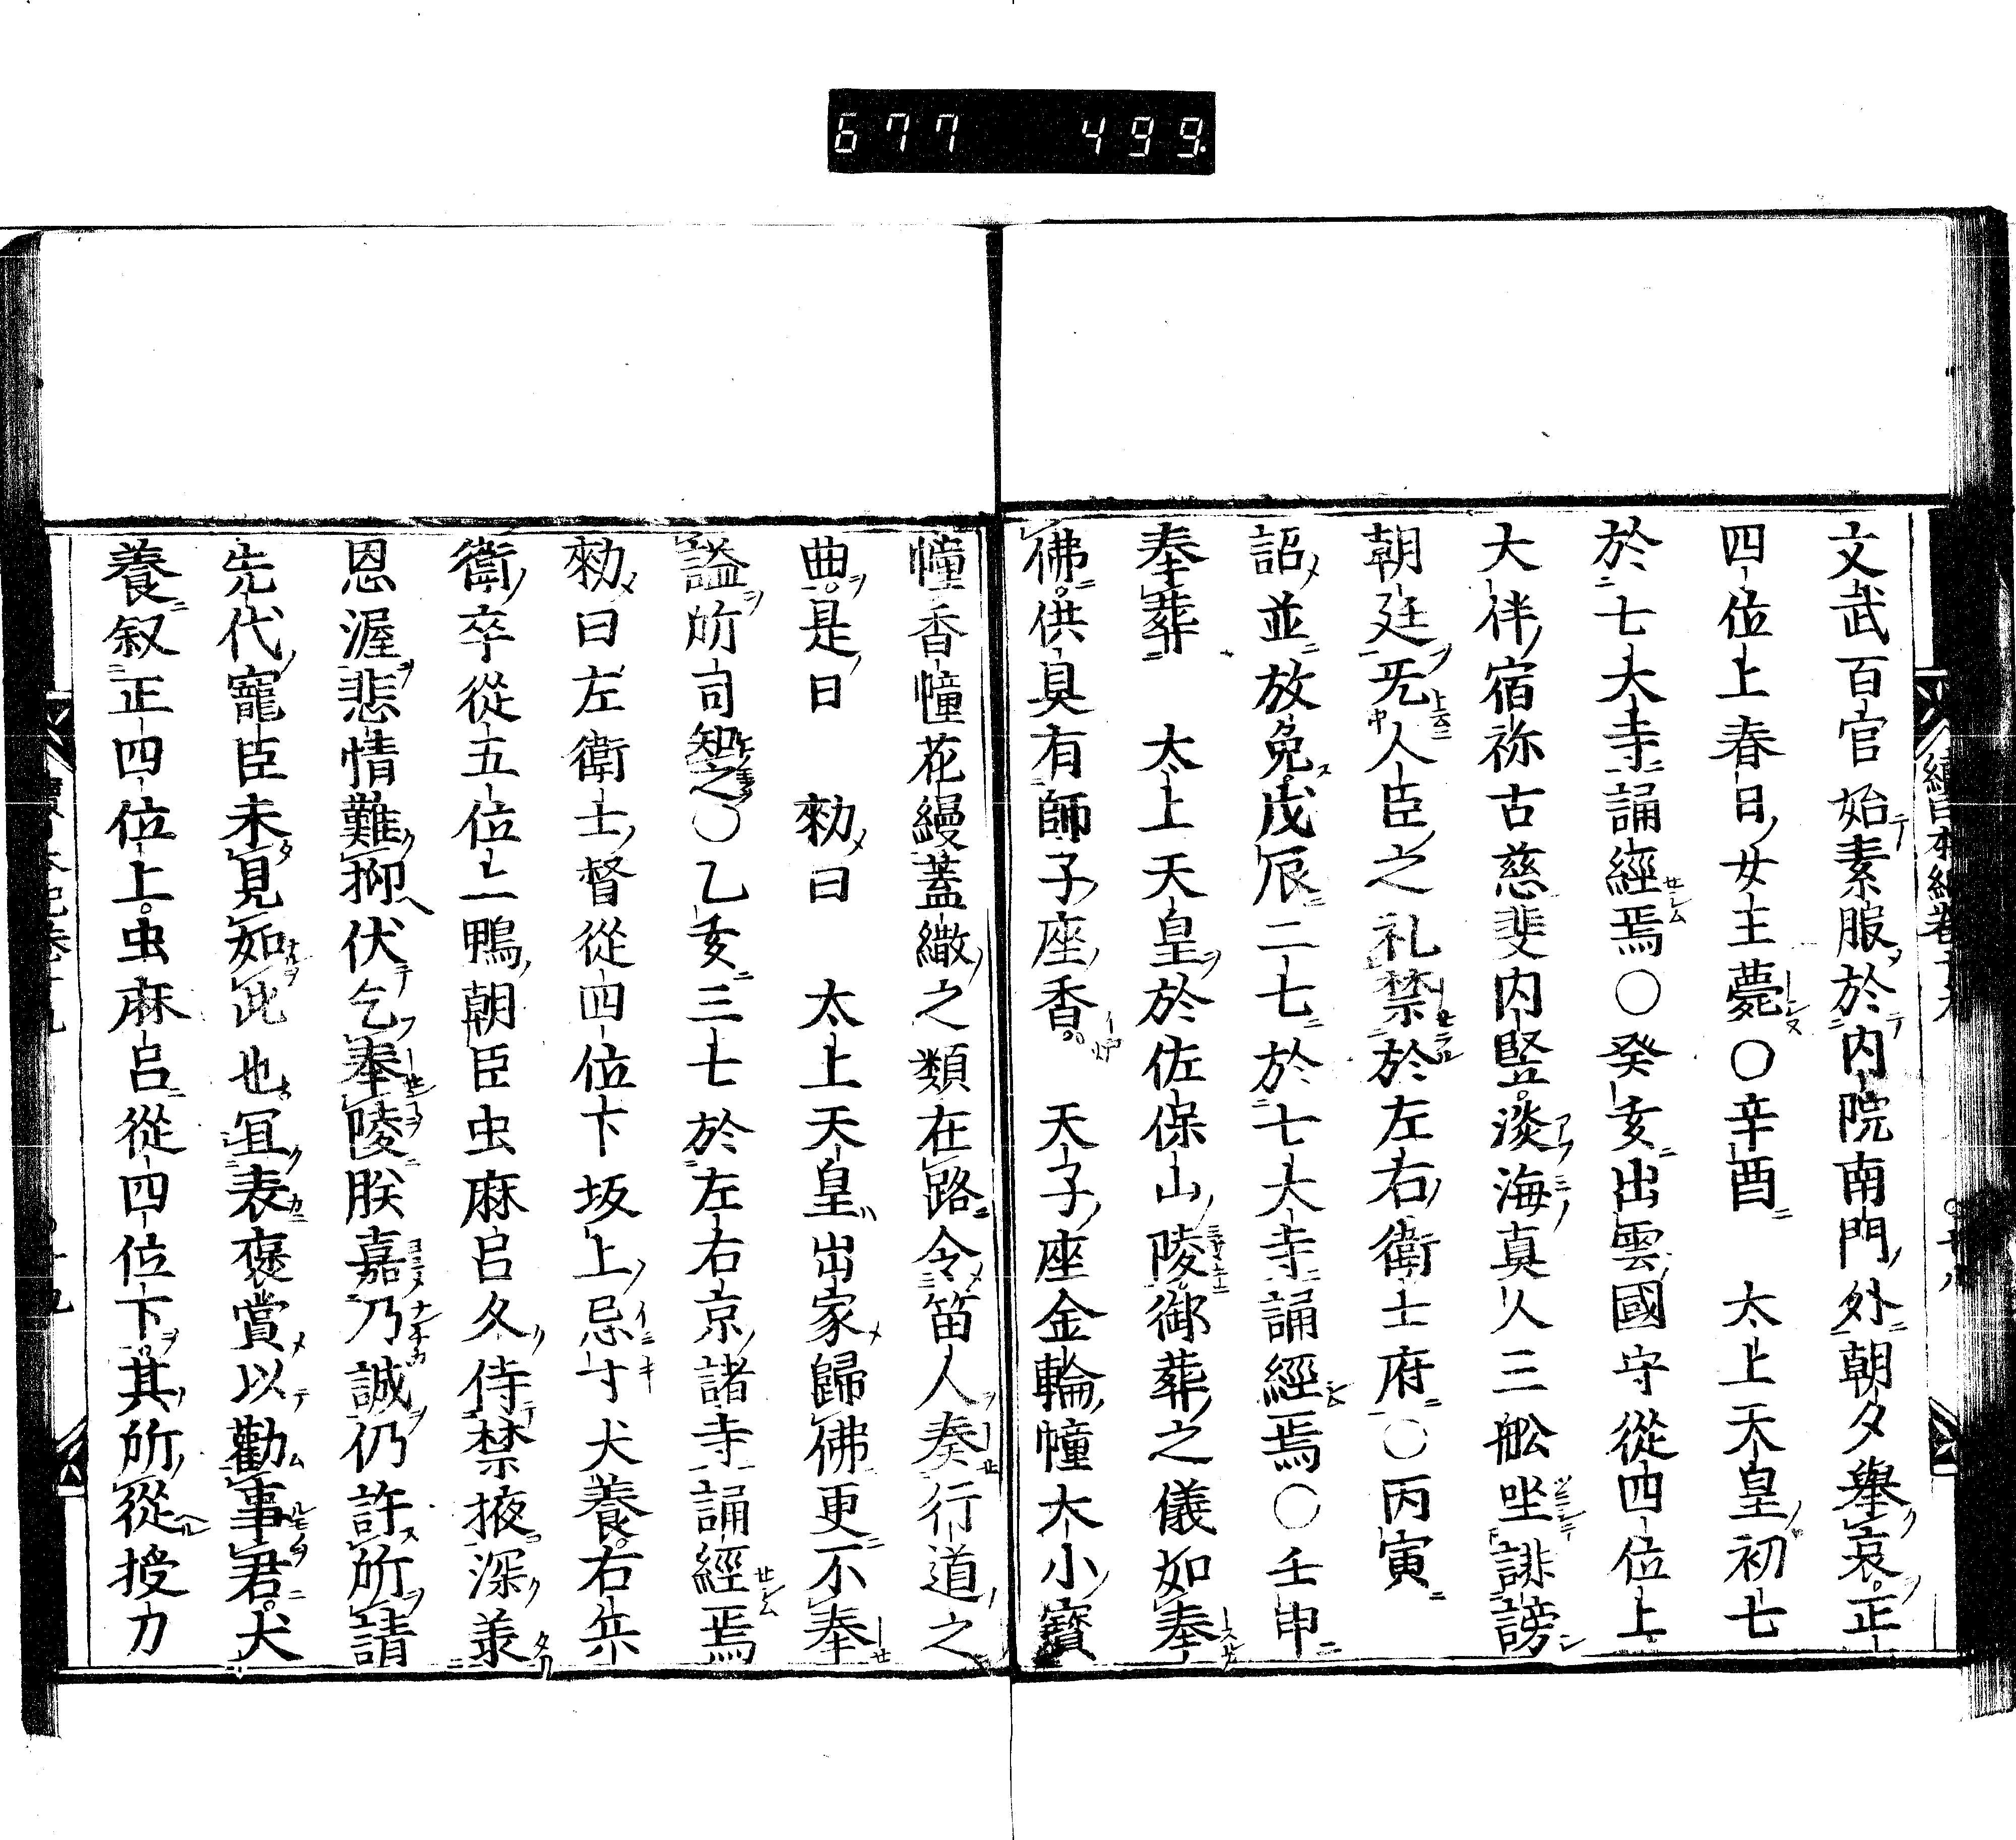 677 499.
文武百官始素服於内院南門外朝夕擧哀正
四位上春日女王薨○辛酉 太上天皇初七
於七大寺誦經焉○癸亥出雲國守從四位上
大伴宿祢古慈斐内竪淡海真人三舩坐誹謗
朝廷旡人臣之礼禁於左右衛士府○丙寅
詔並放免戊辰二七於七大寺誦經焉○壬申
奉葬 太上天皇於佐保山陵御葬之儀如奉
佛供具有師子座香 天子座金輪幢大小寶
幢香幢花縵蓋繖之類在路令笛人奏行道之
曲是日 勑曰 太上天皇出家歸佛更不奉
謚所司知之○乙亥三七於左右京諸寺誦經焉
勑曰左衛士督從四位下坂上忌寸犬養右兵
衛卒從五位上鴨朝臣虫麻呂久侍禁掖深羕
恩渥悲情難抑伏乞奉陵朕嘉乃誠仍許所請
先代寵臣未見如此也冝表褒賞以勸事君犬
養叙正四位上虫麻呂從四位下其所從授力